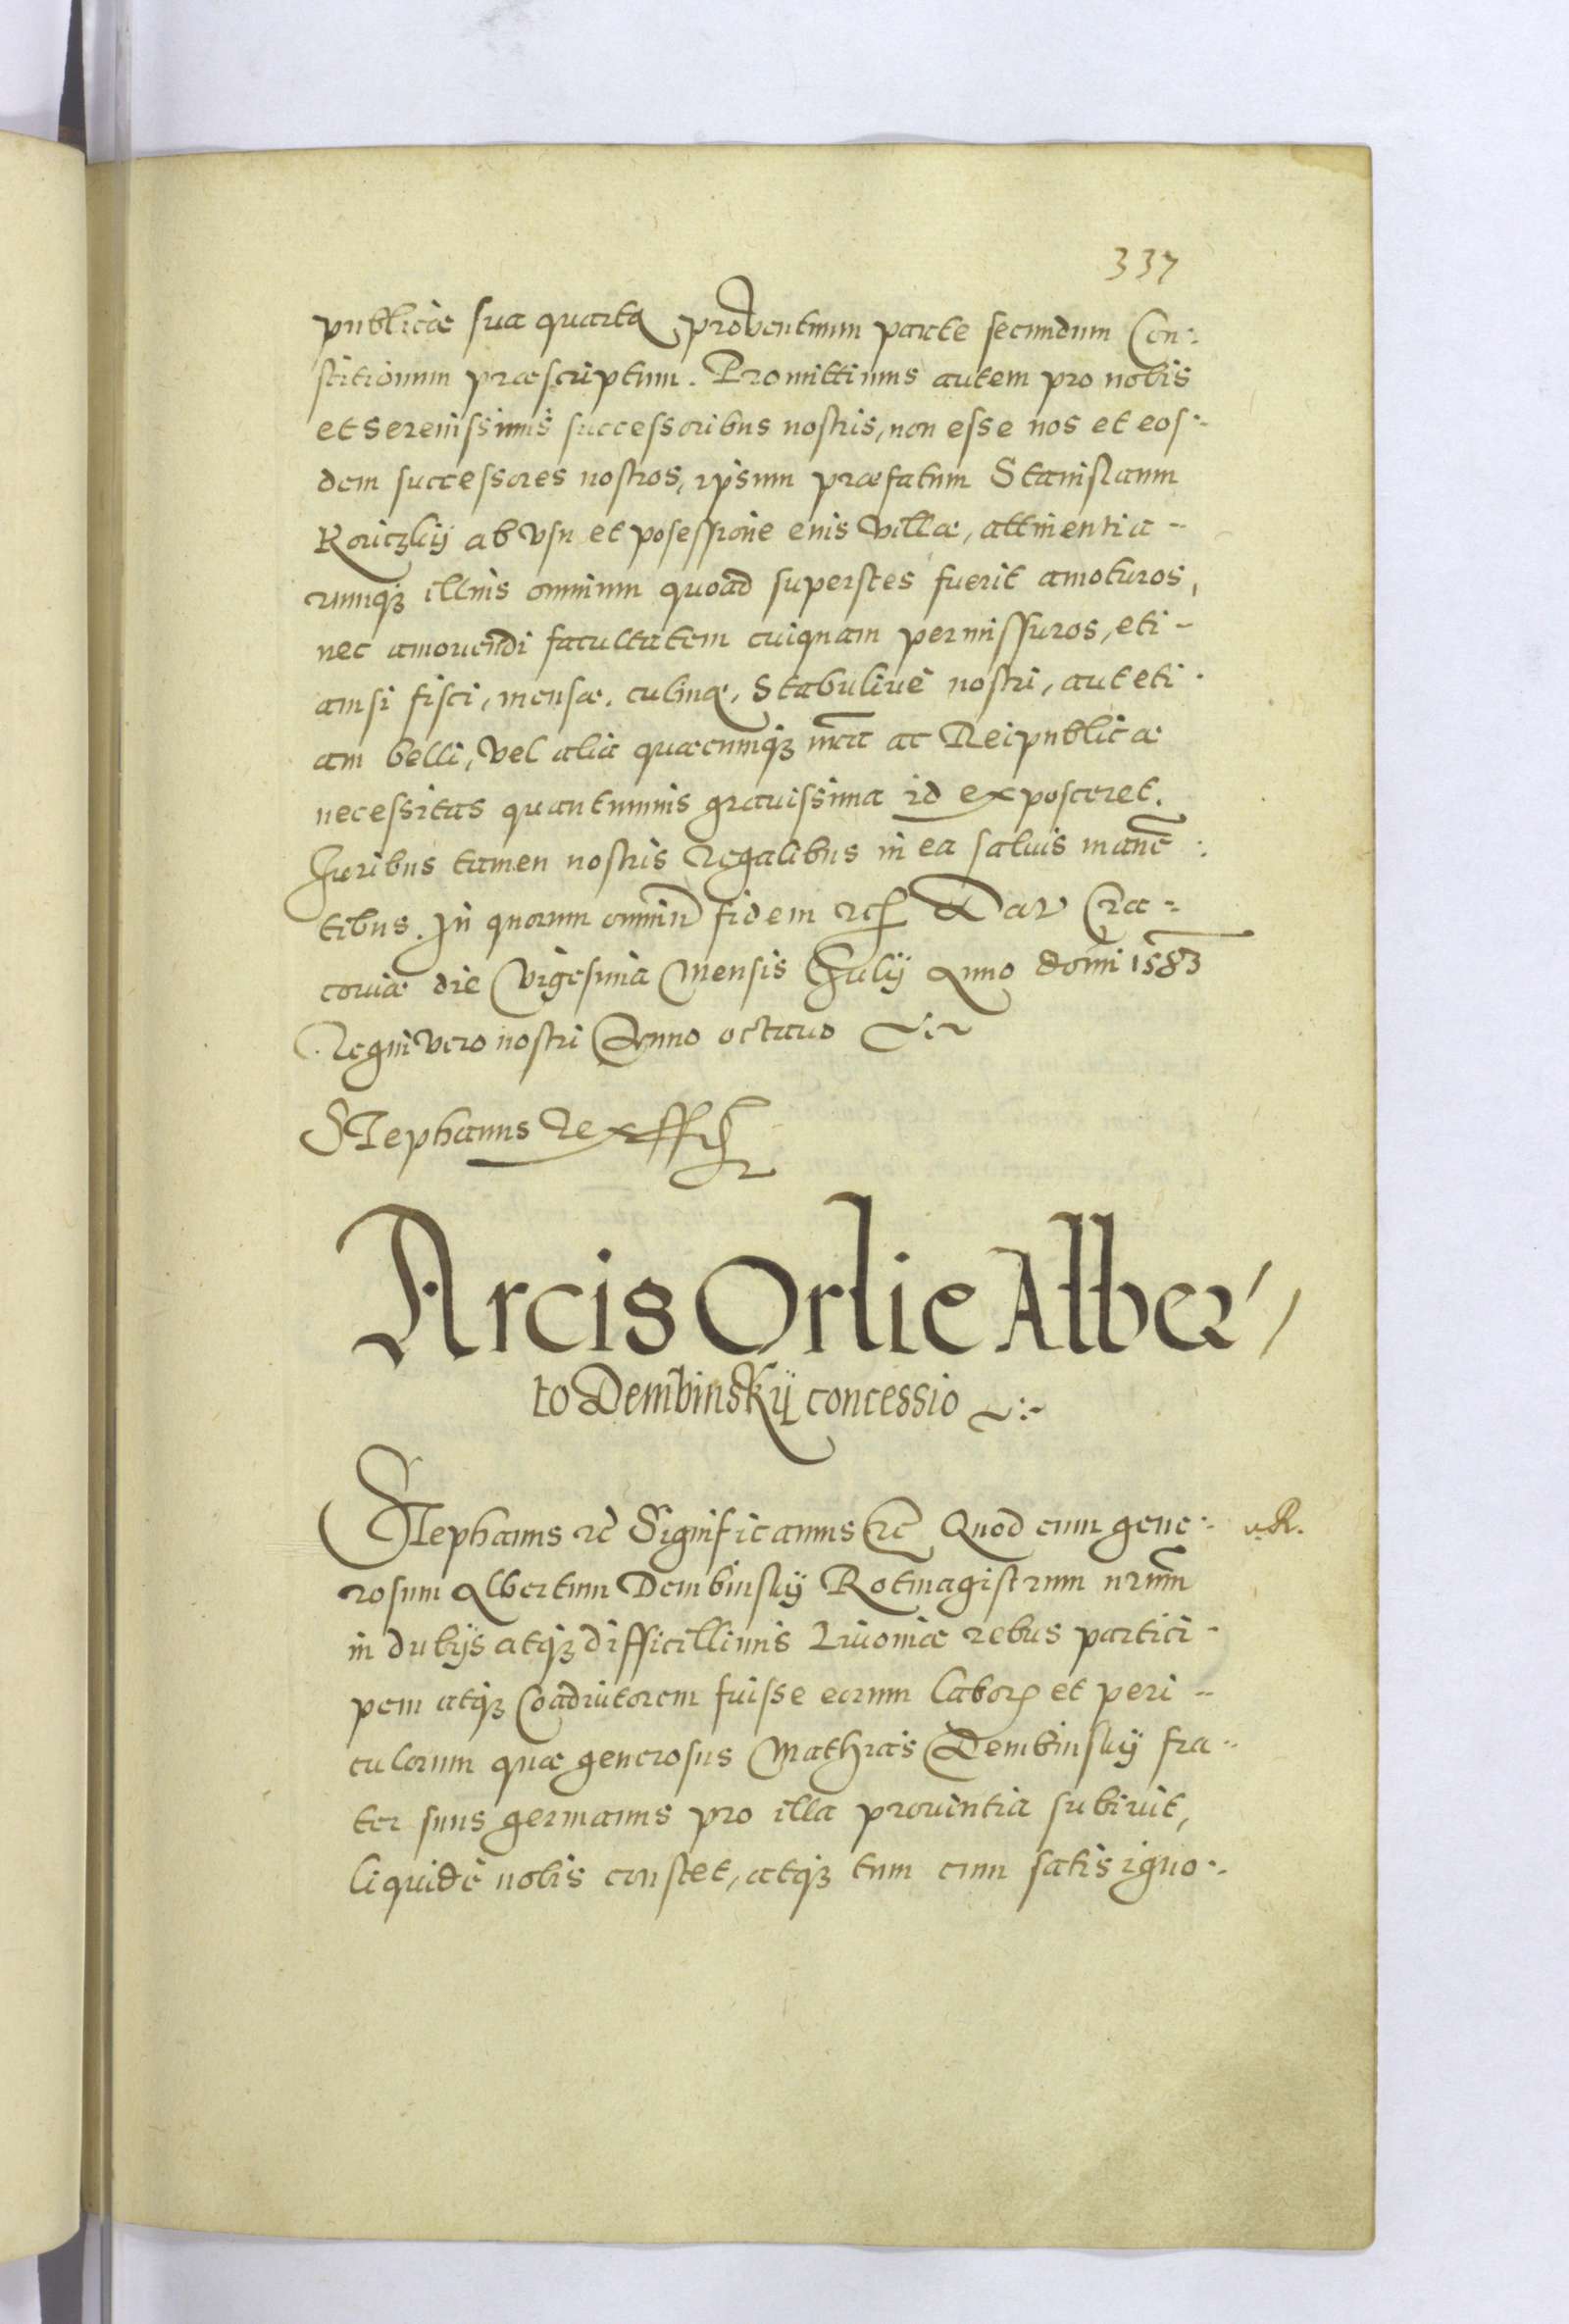 337
publicæ sua quarta proventuum parte secundum Con-
stitionum præscriptum. Promittimus autem pro nobis
et Serenissimis successoribus nostris, non esse nos et eos-
dem successores nostros, ipsum præfatum Stanislaum
Koriczkij ab vsu et posessione eius villæ, attinentia-
rumqȝ illius omnium quoad superstes fuerit amoturos,
nec amouendi facultatem cuiquam permissuros, eti-
amsi fisci, mensæ, culinæ, Stabuliue nostri, aut eti-
am belli, vel alia quæcumqȝ nrã ac Reipublicæ
necessitas quantumuis grauissima id exposceret.
Juribus tamen nostris Regalibus in ea saluis manẽ-
tibus. In quorum omniũ fidem etc Dat Cra-
couiæ die Vigesima Mensis Julij Anno domi 1583
Regni vero nostri Anno octauo
Stephanus Rex sst
Arcis Orlie Alber-
to Dembinskij concessio
Stephanus etc Significamus etc Quod cum gene-
R.
rosum Albertum Dembinskij Rotmagistrum nrum
in dubijs atqȝ difficillimis Liuoniæ rebus partici-
pem atqȝ Coadiutorem fuisse eorum labor et peri-
culorum quæ generosus Mathias Dembinskij fra-
ter suus germanus pro illa prouintia subiuit,
liquidè nobis constet, atqȝ tum cum satis igno-